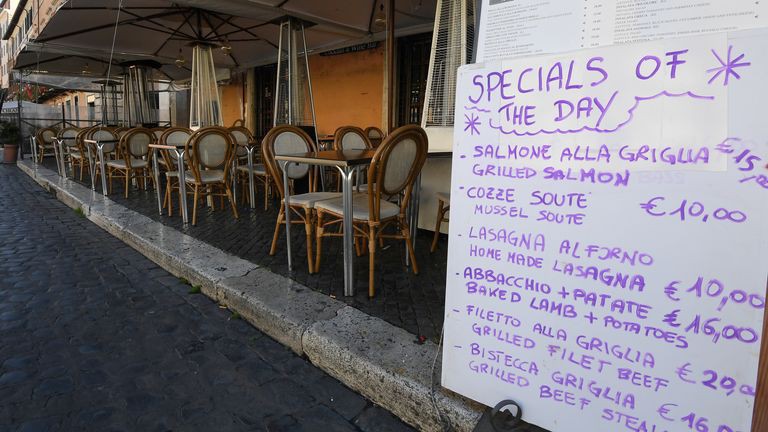 SPECIALS OF
THE DAY
- SALMONE ALLA GRIGLIA € 15,
GRILLED SALMON
- COZZE SOUTE € 10,00
MUSSEL SOUTE
- LASAGNA AL FORNO
HOME MADE LASAGNA € 10,00
- ABBACCHIO + PATATE € 16,00
BAKED LAMB + POTATOES
- FILETTO ALLA GRIGLIA
GRILLED FILET BEEF € 20,00
- BISTECCA GRIGLIA € 16,00
GRILLED BEEF STEAK